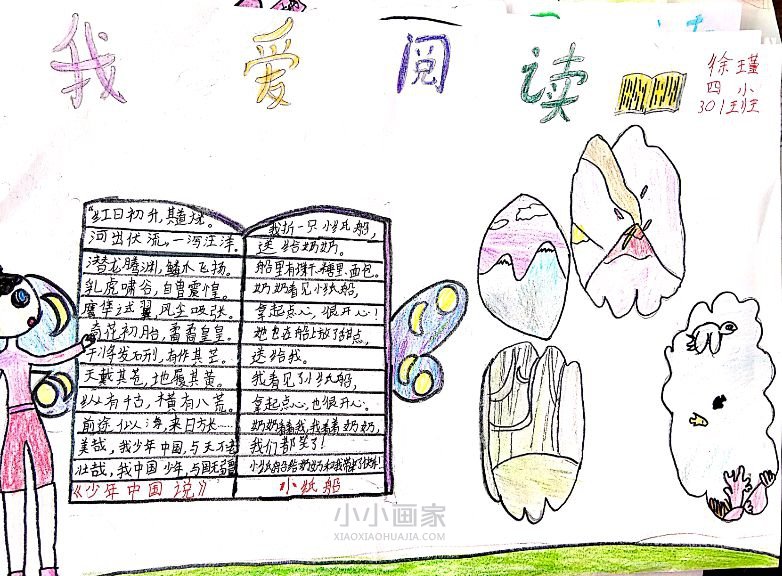 我爱阅读
徐瑾
四小
301班
“红日初升,其道大光。
河出伏流,一泻汪洋。
潜龙腾渊,鳞爪飞扬。
乳虎啸谷,百兽震惶。
鹰隼试翼,风尘吸张。
奇花初胎,矞矞皇皇。
干将发硎,有作其芒。
天戴其苍,地履其黄。
纵有千古,横有八荒。
前途似海,来日方长……
美哉,我少年中国,与天不老
壮哉,我中国少年,与国无疆
《少年中国说》
我折一只小纸船,
送给奶奶。
船里有饼干、糖果、面包。
奶奶看见小纸船,
拿起点心,很开心!
她也在船上放了甜点,
送给我。
我看见了小纸船,
拿起点心,也很开心。
奶奶看着我,我看着奶奶,
我们都笑了!
小纸船
小小画家
XIAOXIAOHUAJIA.COM